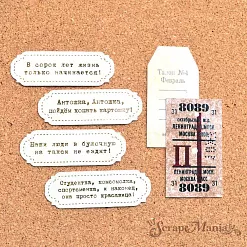 В сорок лет жизнь
только начинается!
Антошка, Антошка,
пойдём копать картошку!
Наши люди в булочную
на такси не ездят!
Студентка, комсомолка,
спортсменка, и наконец,
она просто красавица!
Талон №4
Февраль
8089
31
31
ЛЕНИНГРАД
МОСКВА
Ш
ЛЕНИНГРАД
МОСКВА
8089
ScrapMania